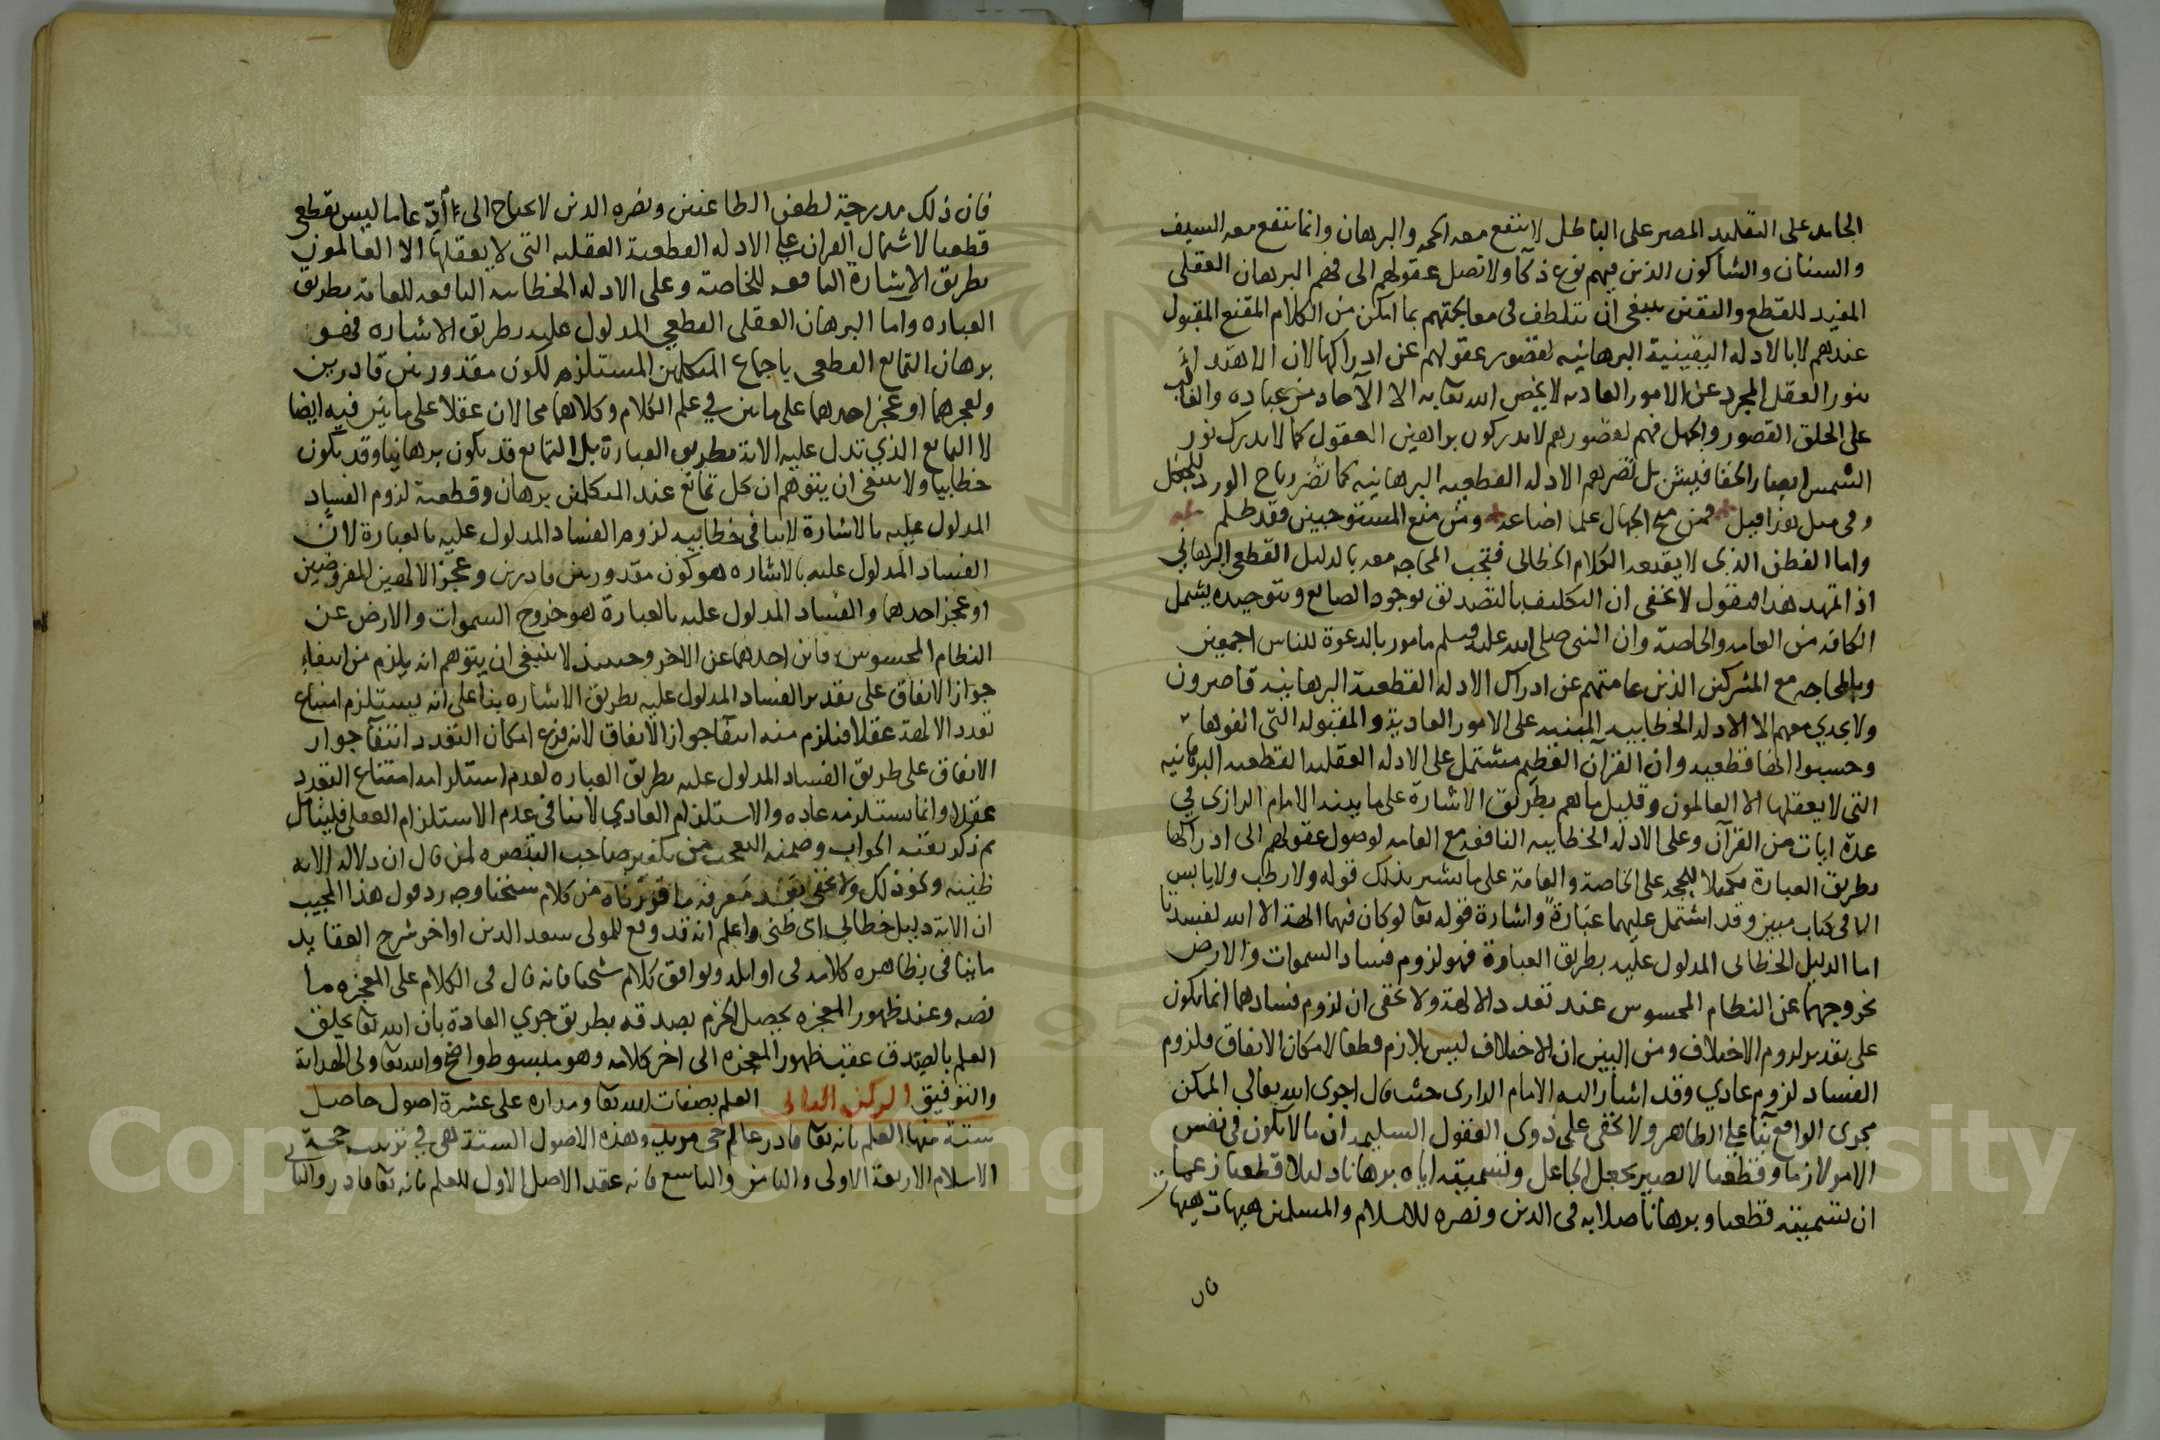 الجامد على التقليد المصر على الباطل لا تنفع معه الحجه والبرهان وانما تنفع معه السيف
والسنان والشاكون الذين فيهم نوع ذكآ ولا تصل عقولهم الى فهم البرهان العقلى
المفيد للقطع والتقين ينبغى ان يتلطف فى معالجتهم بما امكن من الكلام المقنع المقبول
عندهم لا بالادله اليقينية البرهانيه لقصور عقولهم عن ادراكها لان الاهتداء
بنور العقل المجرد عن الامور العاديه لا يخص الله تعا به الا الآحاد من عباده والغالب
على الخلق القصور والجهل فهم لقصورهم لا يدركون براهين العقول كما لا يدرك نور
الشمس ابصار الخفافيش بل تضرهم الادله القطعيه البرهانيه كما تضر رياح الورد للجعل
وفى مثل هذا قيل فمن منح الجهال علما اضاعه ومن منع المستوجبين فقد ظلم
واما الفطن الذى لا يقنعه الكلام الخطابى فتجب المحاجه معه بالدليل القطعى البرهاني
اذا تمهد هذا فنقول لا يخفى ان التكليف بالتصديق بوجود الصانع وبتوحيده يشمل
الكافه من العامه والخاصة وان النبى صلى الله عليه وسلم مامور بالدعوة للناس اجمعين
وبالمحاجه مع المشركين الذين عامتهم عن ادراك الادله القطعية البرهانيه قاصرون
ولا يجدي معهم الا الادله الخطابيه المبنيه على الامور العادية والمقبوله التى الفوها
وحسبوا انها قطعيه وان القرآن العظيم مشتمل على الادله العقليه القطعيه البرهانيه
التى لا يعقلها الا العالمون وقليل ما هم بطريق الاشارة على ما بينه الامام الرازى في
عدة ايات من القرآن وعلى الادله الخطابيه النافعه مع العامه لوصول عقولهم الى ادراكها
بطريق العبارة تكميلا للحجه على الخاصة والعامة على ما يشير بذلك قوله ولا رطب ولا يابس
الا فى كتاب مبين وقد اشتمل عليهما عبارة واشارة قوله تعا لو كان فيهما الهة الا الله لفسدتا
اما الدليل الخطابى المدلول عليه بطريق العبارة فهو لزوم فساد السموات والارض
بخروجهما عن النظام المحسوس عند تعدد الالهة ولا يخفى ان لزوم فسادهما انما يكون
على تقدير لزوم الاختلاف ومن البين ان الاختلاف ليس بلازم قطعا لامكان الاتفاق فلزوم
الفساد لزوم عادي وقد اشار اليه الامام الرازى حيث قال اجوى الله تعالى الممكن
مجرى الواقع بنآ على الظاهر ولا يخفى على ذوى العقول السليمه ان ما لا يكون فى نفس
الامر لازما وقطعيا لا يصير بجعل الجاعل وتسميته اياه برهانا دليلا قطعيا زعما
ان تسميته قطعيا وبرهانا صلابه فى الدين ونصره للاسلام والمسلمين هيهات هيهات
فان
فان ذلك مدرجة لطعن الطاعنين ونصره الدين لا يحتاج الى ادعا ما ليس بقطعى
قطعيا لاشتمال القران على الادله القطعية العقليه التى لا يعقلها الا العالمون
بطريق الاشارة النافعه للخاصة وعلى الادله الخطابيه النافعه للعامة بطريق
العباره واما البرهان العقلى القطعى المدلول عليه بطريق الاشاره فهو
برهان التمانع القطعى باجماع المتكلمين المستلزم لكون مقدور بين قادرين
ولعجزهما او عجز احدهما على ما بين في علم الكلام وكلاهما محالان عقلا على ما بين فيه ايضا
لا التمانع الذي تدل عليه الاية بطريق العبارة بل التمانع قد يكون برهانيا وقد يكون
خطابيا ولا ينبغى ان يتوهم ان كل تمانع عند المتكلمين برهان وقطعية لزوم الفساد
المدلول عليه بالاشارة لا ينافى خطابيه لزوم الفساد المدلول عليه بالعبارة لان
الفساد المدلول عليه بالاشاره هو كون مقدور بين قادرين وعجز الالهين المفروضين
او عجز احدهما والفساد المدلول عليه بالعبارة هو خروج السموات والارض عن
النظام المحسوس فاين احدهما عن الاخر وحينئذ لا ينبغى ان يتوهم انه يلزم من انتفاء
جواز الاتفاق على تقدير الفساد المدلول عليه بطريق الاشاره بنا على انه يستلزم امتناع
تعدد الالهة عقلا فيلزم منه انتفآ جواز الاتفاق لانه فرع امكان التعدد انتفآ جواز
الاتفاق على طريق الفساد المدلول عليه بطريق العباره لعدم استلزامه امتناع التعدد
عقلا وانما يستلزمه عاده والاستلزام العادي لا ينافى عدم الاستلزام العقلى فليتامل
ثم ذكر بقية الجواب وضمنه التعجب من تكفير صاحب التبصره لمن قال ان دلاله الايه
ظنيه ونحو ذلك ولا يخفى بعد معرفة ما قررناه من كلام شيخنا وجه رد قول هذا المجيب
ان الاية دليل خطابي اى ظنى واعلم انه قد وقع للمولى سعد الدين اواخر شرح العقايد
ما ينافى بظاهره كلامه فى اوائله ويوافق كلام شيخنا فانه قال فى الكلام على المعجزه ما
نصه وعند ظهور المعجزه يحصل الجزم بصدقه بطريق جري العادة بان الله تعا يخلق
العلم بالصدق عقيب ظهور المعجزه الى اخر كلامه وهو مبسوط واضح والله تعا ولى الهداية
والتوفيق الركن الثانى العلم بصفات الله تعا ومداره على عشرة اصول حاصل
ستة منها العلم بانه تعا قادر عالم حى مريد وهذه الاصول الستة هى في ترتيب حجة
الاسلام الاربعة الاولى والثامن والتاسع فانه عقد الاصل الاول للعلم بانه تعا قادر والثانى
Copyright © King Saud University